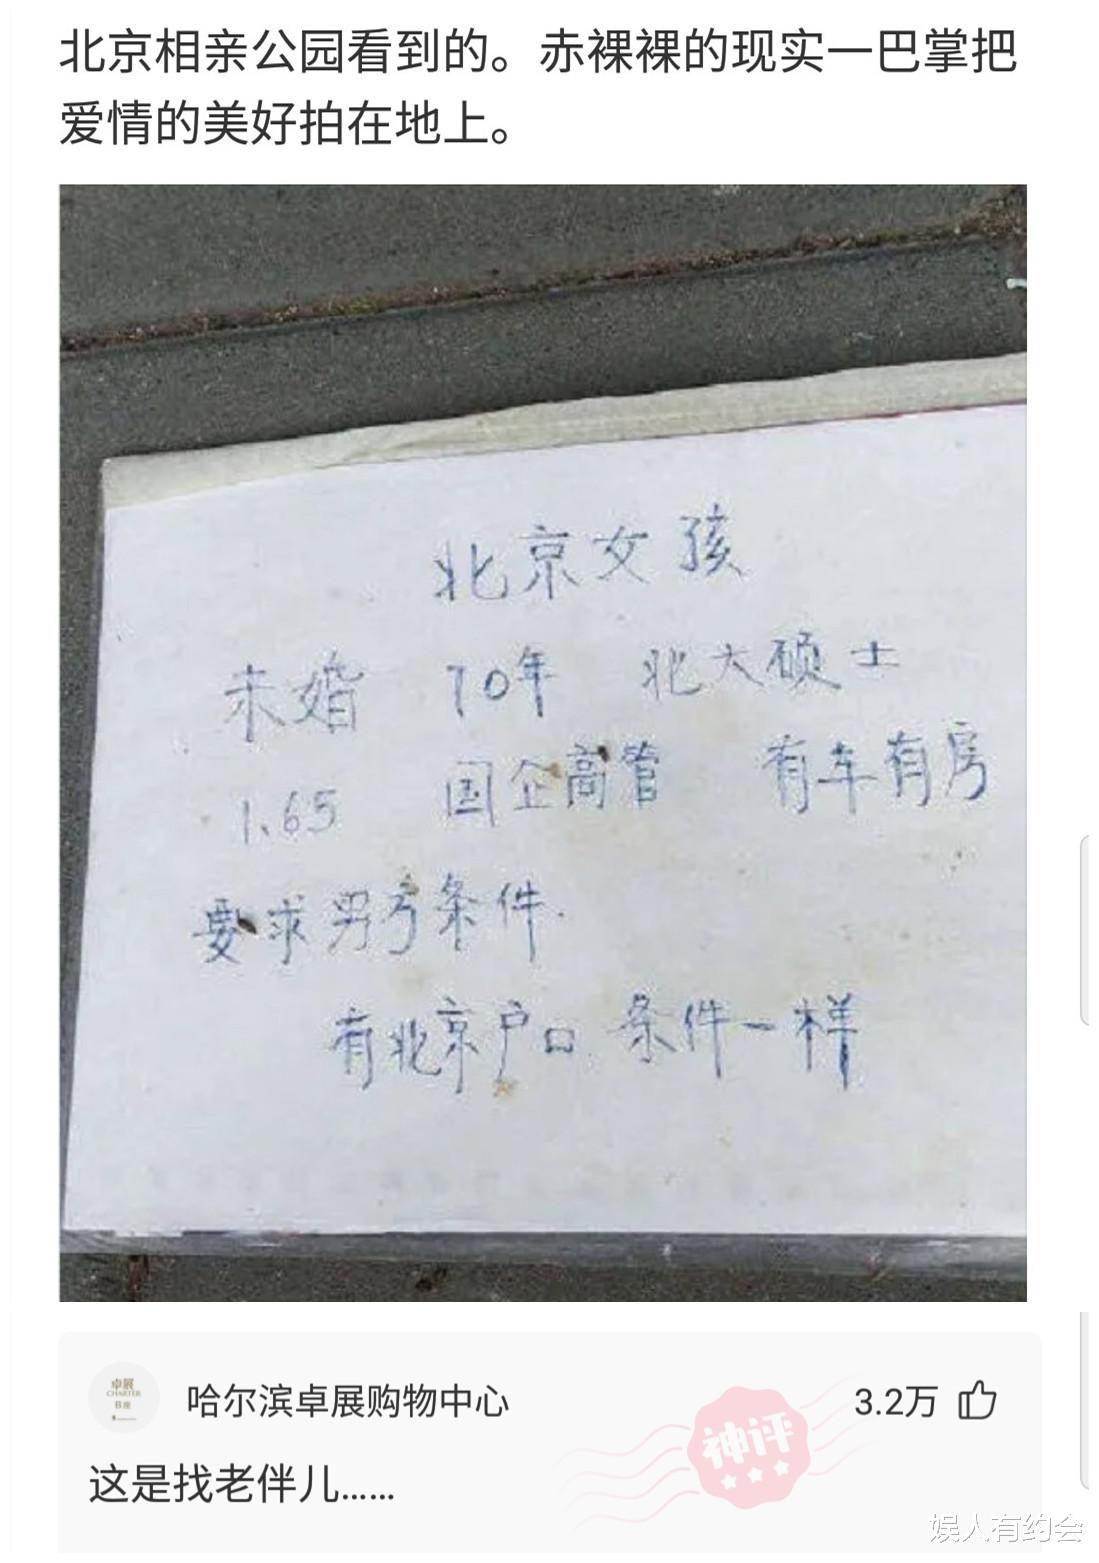 北京相亲公园看到的。赤裸裸的现实一巴掌把
爱情的美好拍在地上。
北京女孩
未婚 70年 北大硕士
1.65 国企高管 有车有房
要求男方条件.
有北京户口 条件一样
卓展
CHARTER
B座
哈尔滨卓展购物中心
3.2万
神评
这是找老伴儿……
娱人有约会